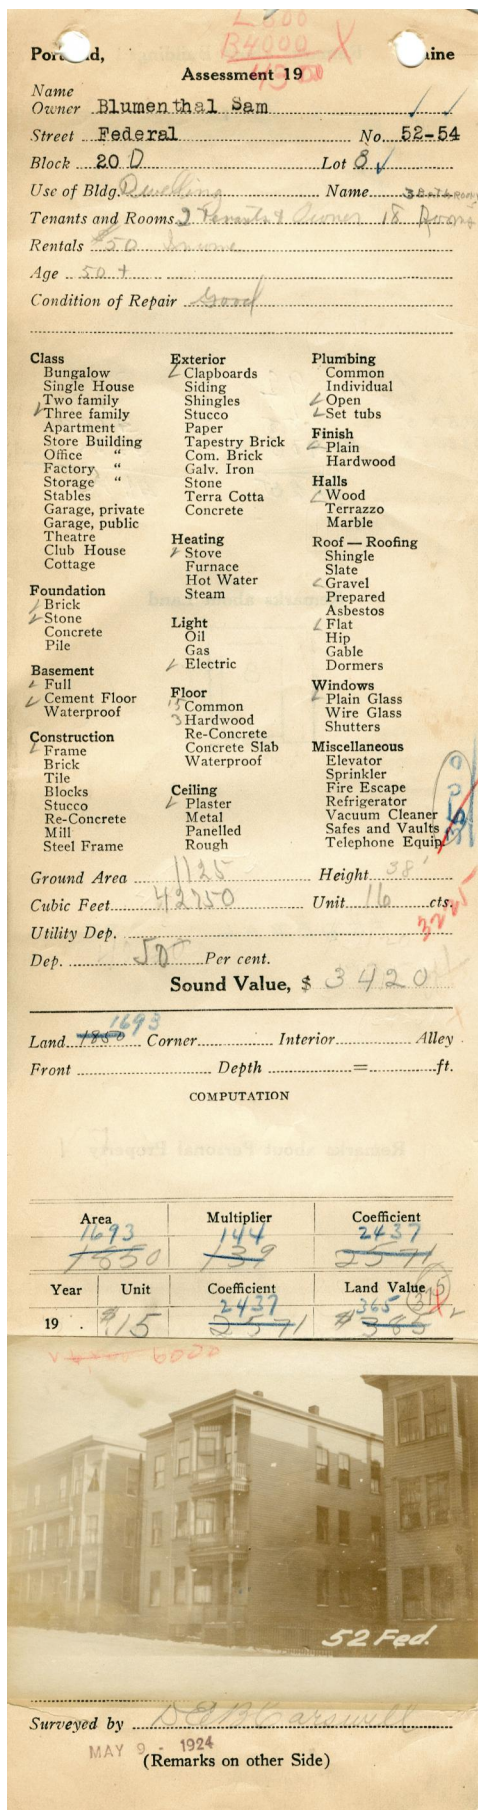 L 300
B 4000 X
43 00
Portland, Maine
Assessment 19
Name
Owner Blumenthal Sam
Street Federal No. 52-54
Block 20 D Lot 8
Use of Bldg. Dwelling Name 3 Bath Rooms
Tenants and Rooms 2 Tenants & Owner 18 Rooms
Rentals $50 Income
Age 50 +
Condition of Repair Good
Class
Bungalow
Single House
Two family
Three family
Apartment
Store Building
Office "
Factory "
Storage "
Stables
Garage, private
Garage, public
Theatre
Club House
Cottage
Foundation
Brick
Stone
Concrete
Pile
Basement
Full
Cement Floor
Waterproof
Construction
Frame
Brick
Tile
Blocks
Stucco
Re-Concrete
Mill
Steel Frame
Exterior
Clapboards
Siding
Shingles
Stucco
Paper
Tapestry Brick
Com. Brick
Galv. Iron
Stone
Terra Cotta
Concrete
Heating
Stove
Furnace
Hot Water
Steam
Light
Oil
Gas
Electric
Floor
15 Common
3 Hardwood
Re-Concrete
Concrete Slab
Waterproof
Ceiling
Plaster
Metal
Panelled
Rough
Plumbing
Common
Individual
Open
Set tubs
Finish
Plain
Hardwood
Halls
Wood
Terrazzo
Marble
Roof — Roofing
Shingle
Slate
Gravel
Prepared
Asbestos
Flat
Hip
Gable
Dormers
Windows
Plain Glass
Wire Glass
Shutters
Miscellaneous
Elevator
Sprinkler
Fire Escape
Refrigerator
Vacuum Cleaner
Safes and Vaults
Telephone Equip.
3500
Ground Area 1125 Height 38'
Cubic Feet 42750 Unit 16 cts.
Utility Dep.
Dep. 50 Per cent.
Sound Value, $ 3420
1693
Land 1850 Corner Interior Alley
Front Depth = ft.
COMPUTATION
Area Multiplier Coefficient
1693 144 2437
1850 139 2571
Year Unit Coefficient Land Value
2437 365
19 . $.15 2571 $385
6000
52 Fed.
Surveyed by D E B Carswell
MAY 9 - 1924
(Remarks on other Side)